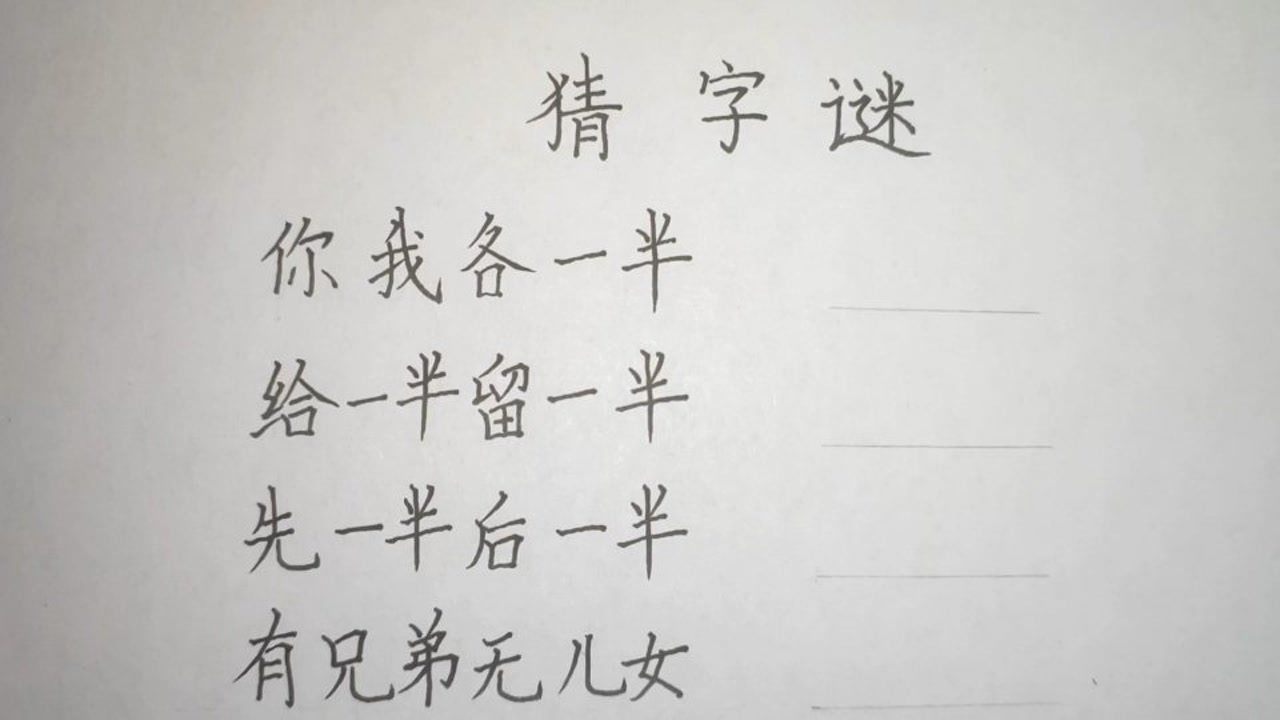 猜字谜
你我各一半
给一半留一半
先一半后一半
有兄弟无儿女